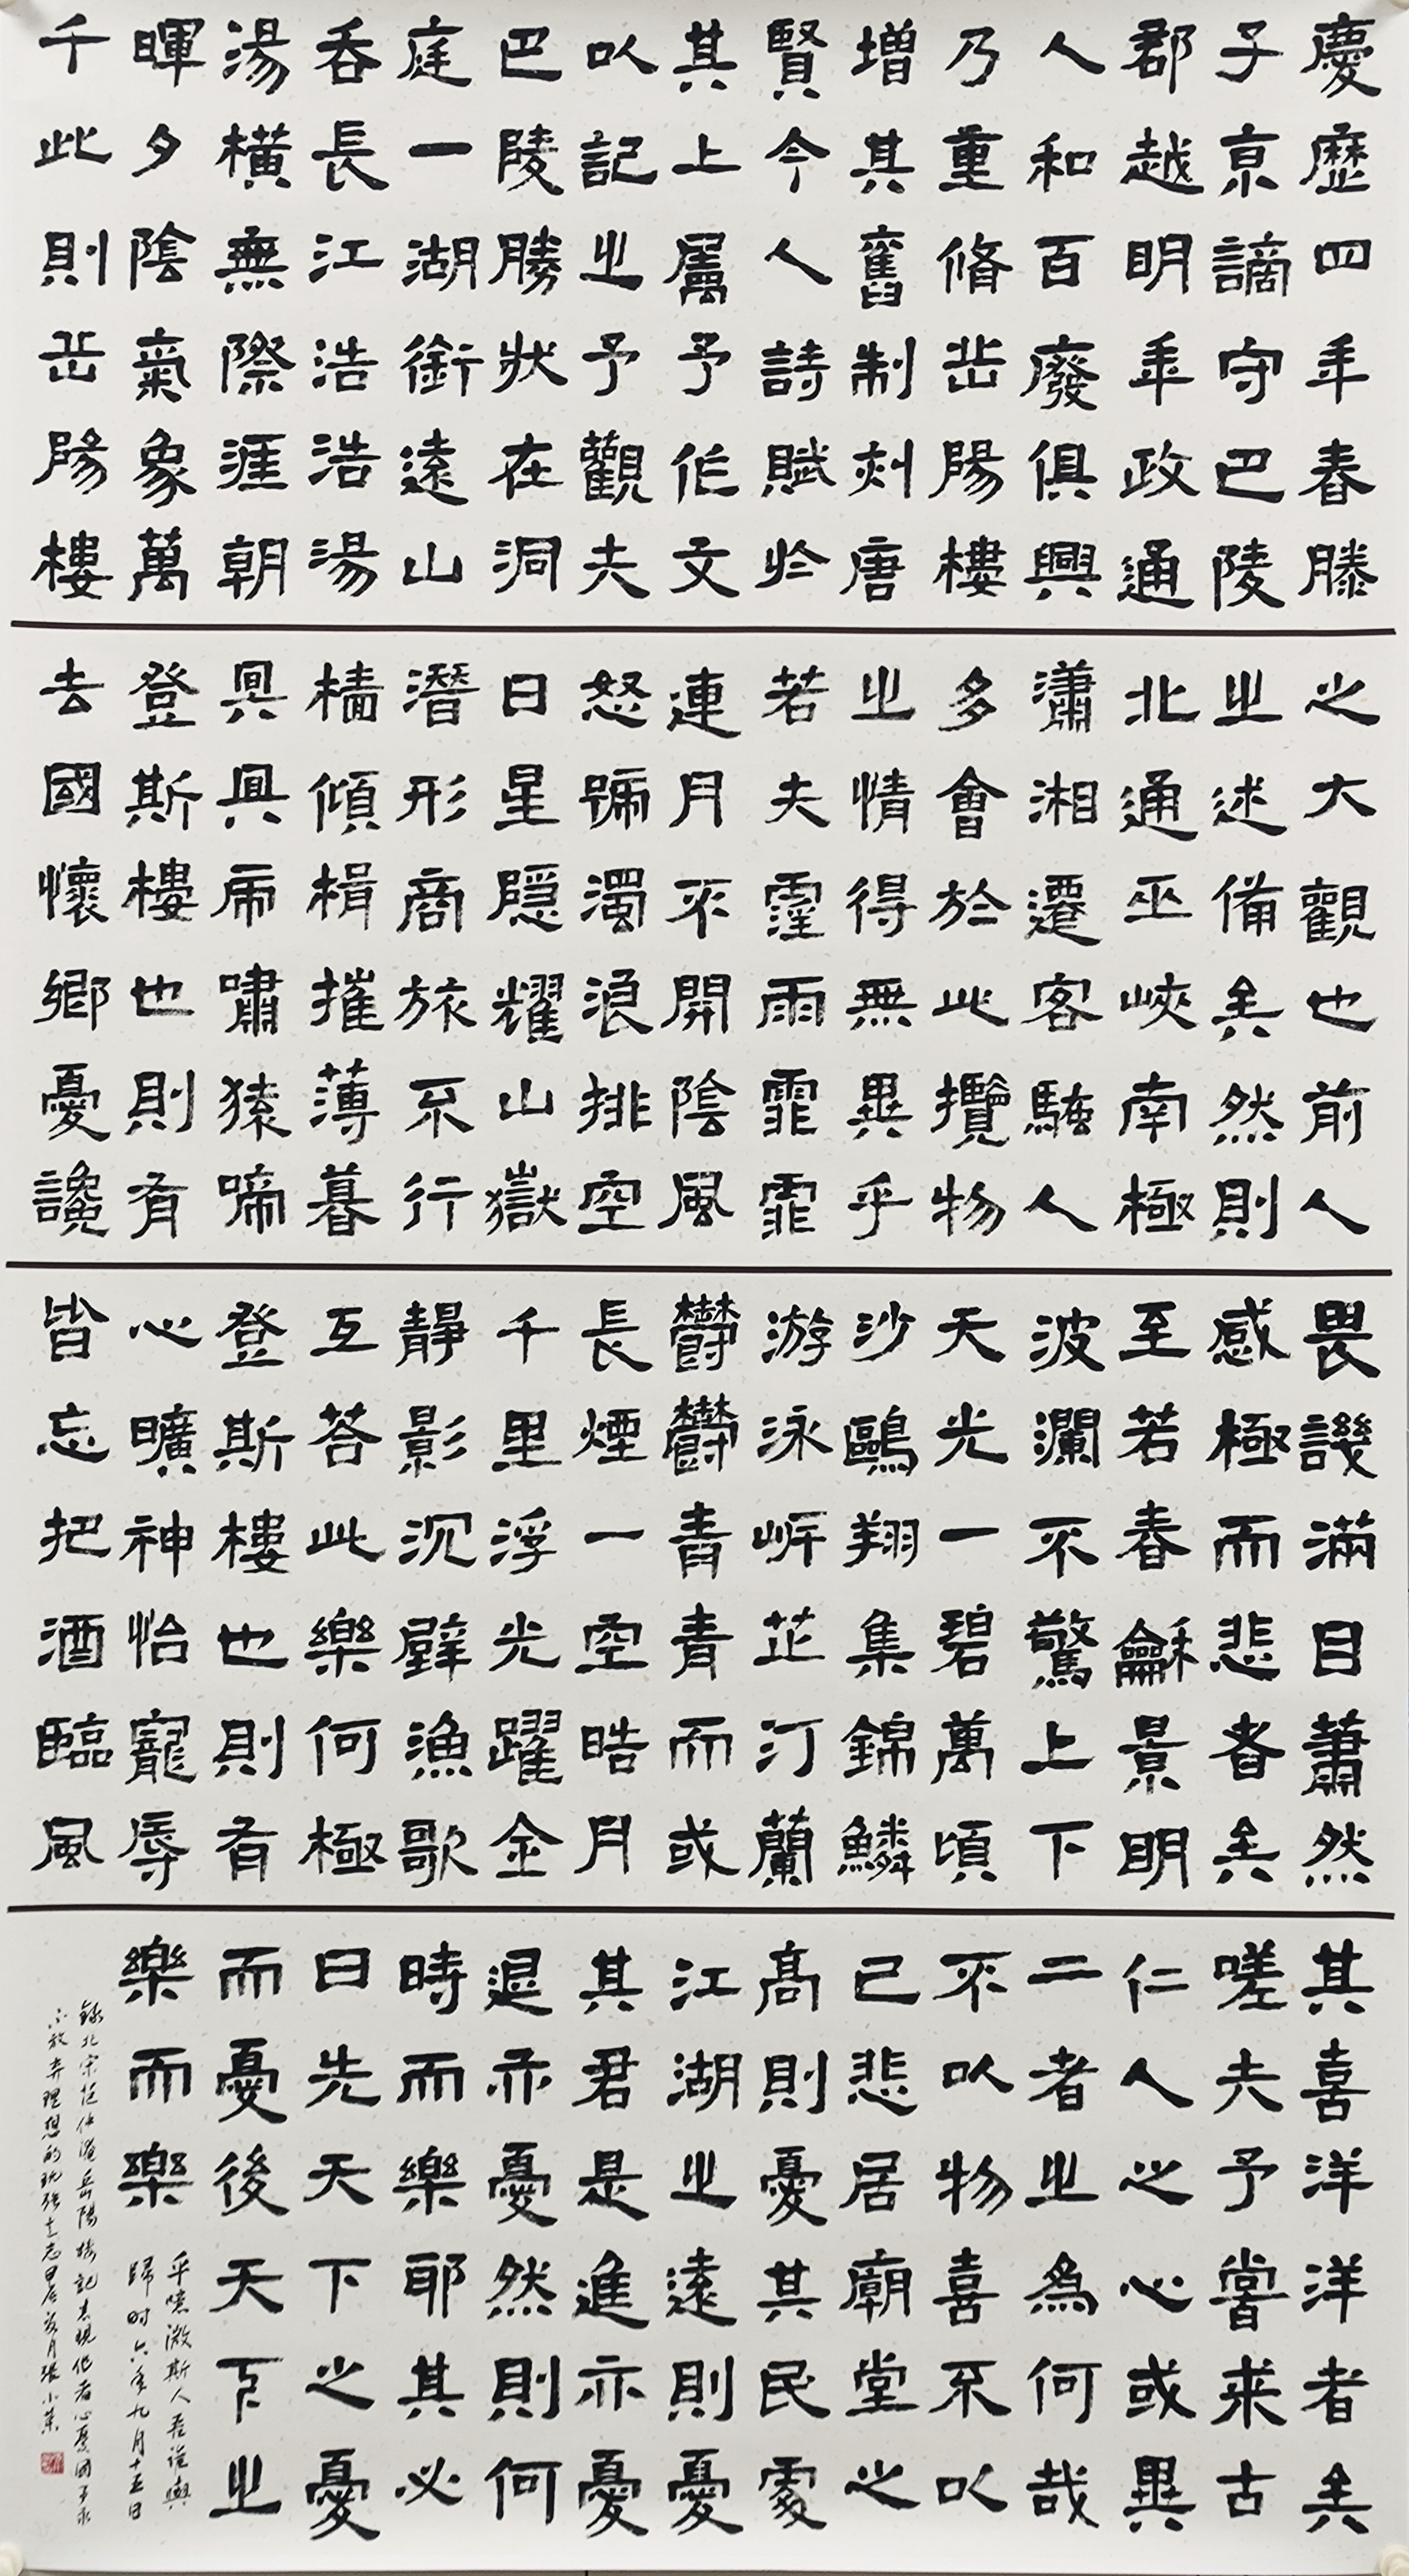 慶歷四年春滕
子京謫守巴陵
郡越明年政通
人和百廢俱興
乃重脩岳陽樓
增其舊制刻唐
賢今人詩賦於
其上屬予作文
以記之予觀夫
巴陵勝狀在洞
庭一湖銜遠山
吞長江浩浩湯
湯橫無際涯朝
暉夕陰氣象萬
千此則岳陽樓
之大觀也前人
之述備矣然則
北通巫峽南極
瀟湘遷客騷人
多會於此攬物
之情得無異乎
若夫霪雨霏霏
連月不開陰風
怒號濁浪排空
日星隱耀山嶽
潛形商旅不行
檣傾楫摧薄暮
冥冥虎嘯猿啼
登斯樓也則有
去國懷鄉憂讒
畏譏滿目蕭然
感極而悲者矣
至若春龢景明
波瀾不驚上下
天光一碧萬頃
沙鷗翔集錦鱗
游泳岸芷汀蘭
鬱鬱青青而或
長煙一空皓月
千里浮光躍金
靜影沉璧漁歌
互荅此樂何極
登斯樓也則有
心曠神怡寵辱
皆忘把酒臨風
其喜洋洋者矣
嗟夫予嘗求古
仁人之心或異
二者之為何哉
不以物喜不以
己悲居廟堂之
高則憂其民處
江湖之遠則憂
其君是進亦憂
退亦憂然則何
時而樂耶其必
曰先天下之憂
而憂後天下之
樂而樂
乎噫微斯人吾誰與
歸时六年九月十五日
錄北宋范仲淹岳陽樓記表現作者心憂國事永
不放弃理想的頑強意志甲辰月張小